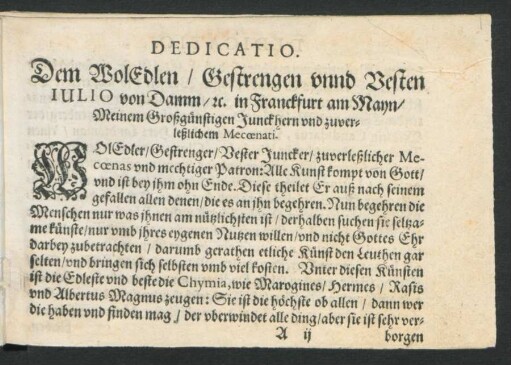 DEDICATIO.
Dem WolEdlen / Gestrengen vnnd Vesten
IULIO von Damm / ꝛc. in Franckfurt am Mayn /
Meinem Großgünstigen Junckhern vnd zuver-
leßlichem Mecœnati.
WOlEdler / Gestrenger / Vester Juncker / zuverleßlicher Me-
cœnas vnd mechtiger Patron: Alle Kunst kompt von Gott /
vnd ist bey ihm ohn Ende. Diese theilet Er auß nach seinem
gefallen allen denen / die es an ihn begehren. Nun begehren die
Menschen nur was ihnen am nützlichsten ist / derhalben suchen sie seltza-
me künste / nur vmb ihres eygenen Nutzen willen / vnd nicht Gottes Ehr
darbey zubetrachten / darumb gerathen etliche Künst den Leuthen gar
selten / vnd bringen sich selbsten vmb viel kosten. Vnter diesen Künsten
ist die Edleste vnd beste die Chymia, wie Marogines / Hermes / Rasis
vnd Albertus Magnus zeugen: Sie ist die höchste ob allen / dann wer
die haben vnd finden mag / der vberwindet alle ding / aber sie ist sehr ver-
A ij borgen